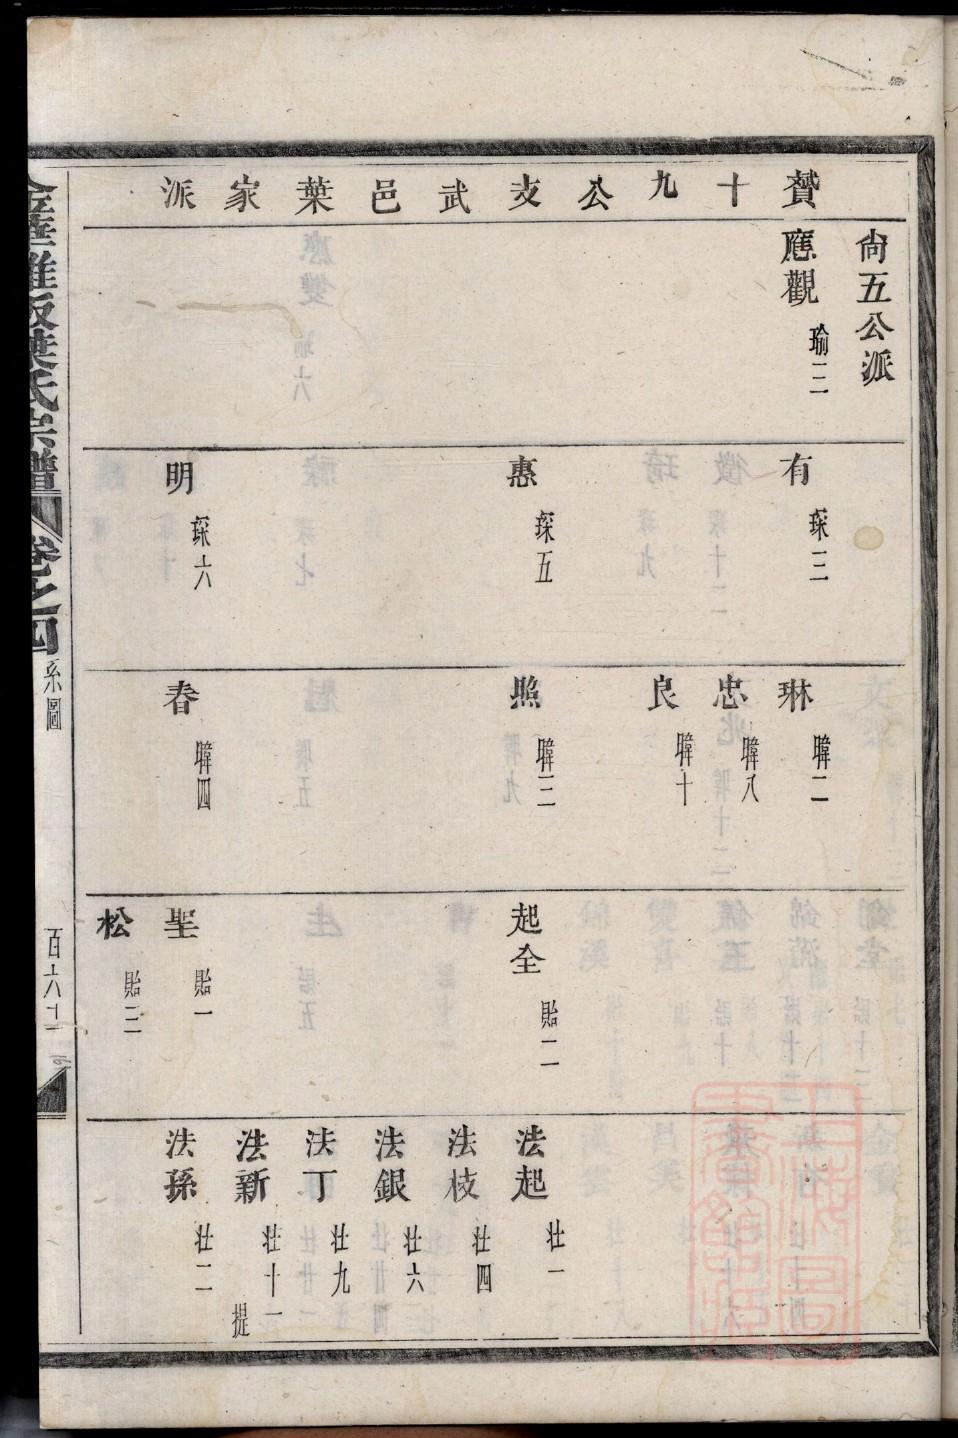 贇十九公支武邑葉家派
尙五公派
應觀 瑜三
有 琛三
惠 琛五
明 琛六
琳 暐二
忠 暐八
良 暐十
照 暐三
春 暐四
起全 貽二
聖 貽一
松 貽三
法起 壯一
法枝 壯四
法銀 壯六
法丁 壯九
法新 壯十一 提
法孫 壯二
葉氏宗譜
卷之四
系圖